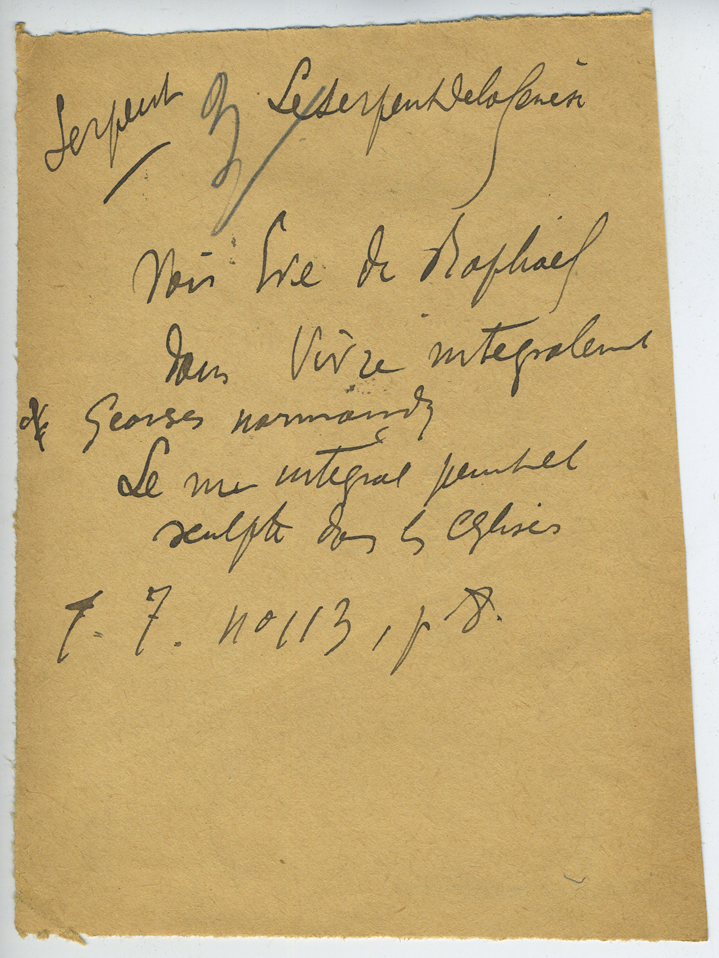 Serpent Le serpent de la Genèse
Voir Eve de Raphael
dans Vivre integralement
Georges normandy
Le nu intégral peint et
sculpté dans les eglises
T. 7. no 113, p 8.